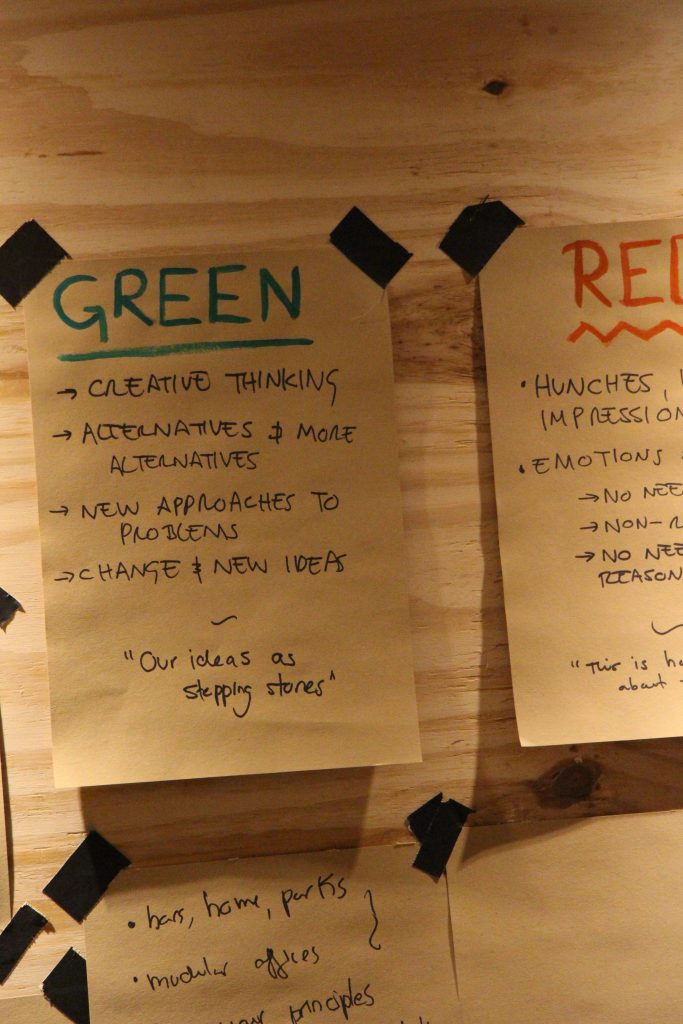 GREEN
→ CREATIVE THINKING
→ ALTERNATIVES & MORE
ALTERNATIVES
→ NEW APPROACHES TO
PROBLEMS
→ CHANGE & NEW IDEAS
~
"Our ideas as
stepping stones"
RED
• HUNCHES,
IMPRESSION
• EMOTIONS
→ NO NEE
→ NON-R
→ NO NEE
REASON
"This is
about
• bars, home, parks
• modular offices
principles